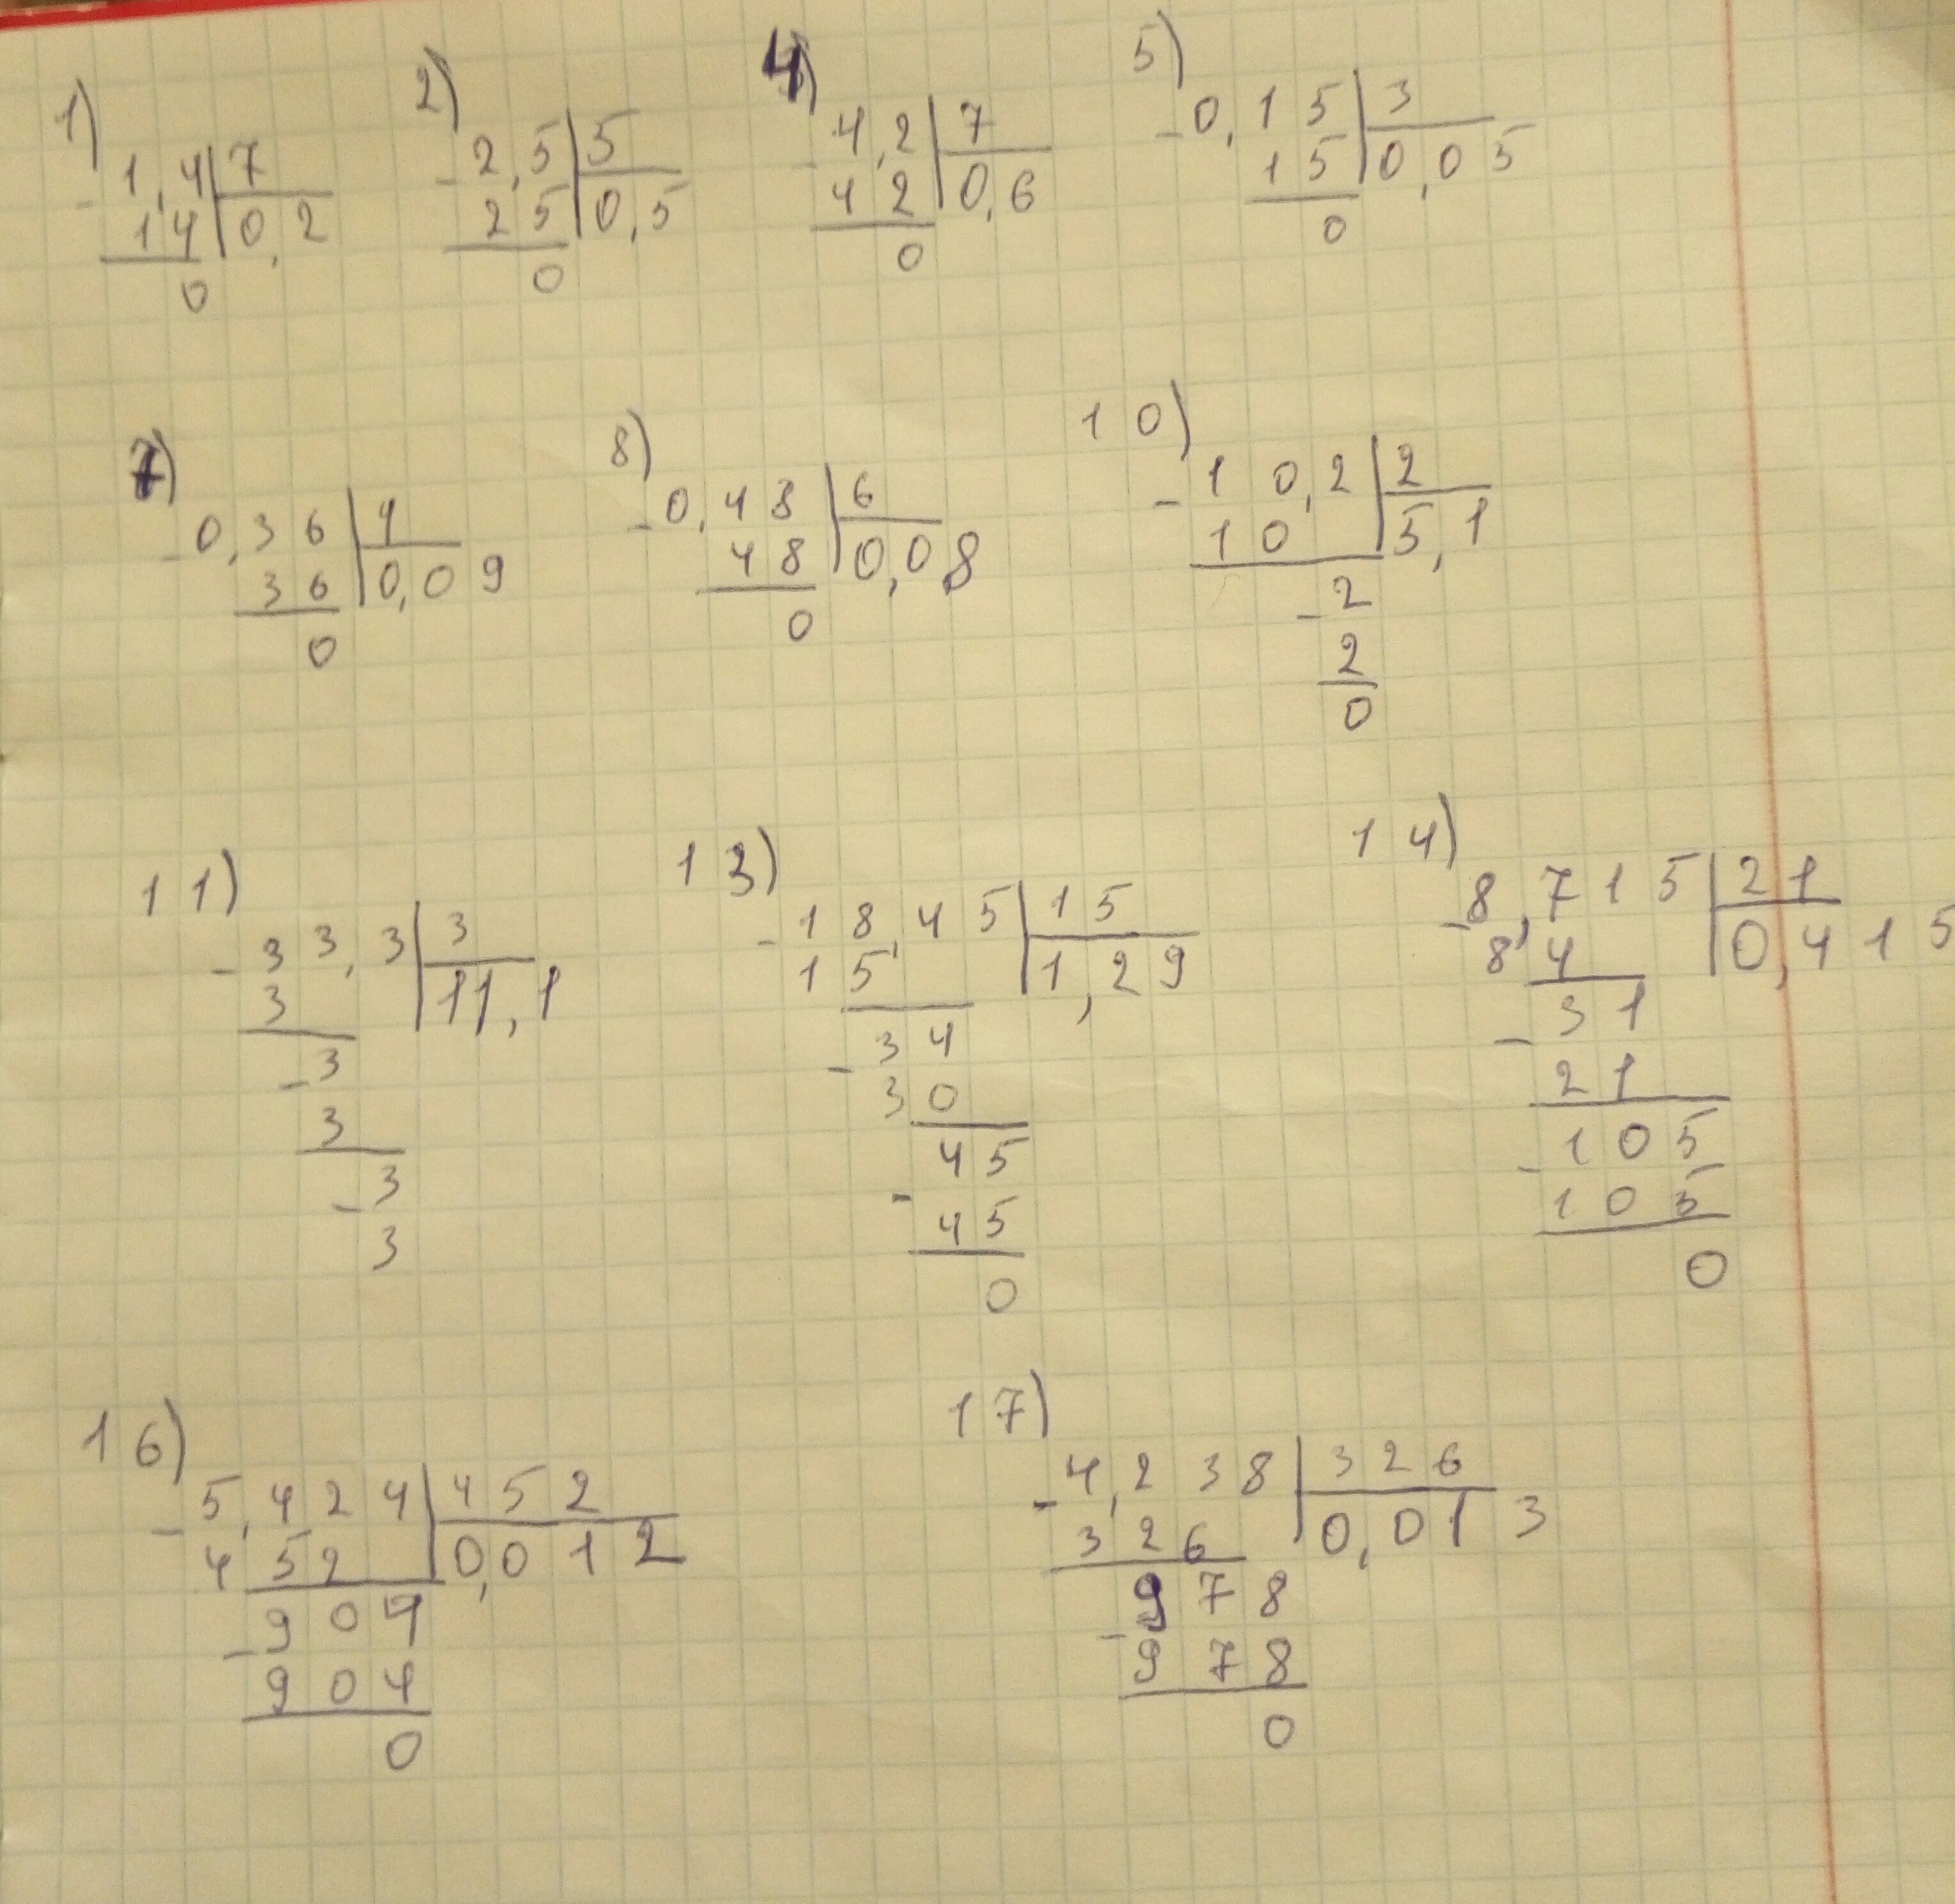 1) 2) 4) 5)
- 1,4 | 7 - 2,5 | 5 - 4,2 | 7 - 0,15 | 3
14 | 0,2 25 | 0,5 42 | 0,6 15 | 0,05
0 0 0 0
7) 8) 10)
- 0,36 | 4 - 0,48 | 6 - 10,2 | 2
36 | 0,09 48 | 0,08 10 | 5,1
0 0 - 2
2
0
11) 13) 14)
- 33,3 | 3 - 18,45 | 15 - 8,715 | 21
3 | 11,1 15 | 1,29 8,4 | 0,415
- 3 - 34 - 31
3 30 21
- 3 - 45 - 105
3 45 105
0 0
16) 17)
- 5,424 | 452 - 4,238 | 326
452 | 0,012 326 | 0,013
- 904 - 978
904 978
0 0